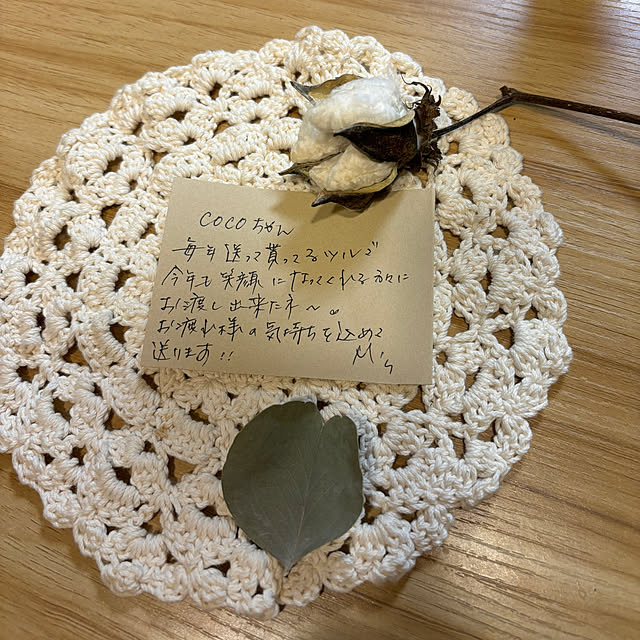 COCOちゃん
毎年送って貰ってるツルで
今年も笑顔になってくれる方々に
お渡し出来たネ〜。
お疲れ様の気持ちを込めて
送ります!!